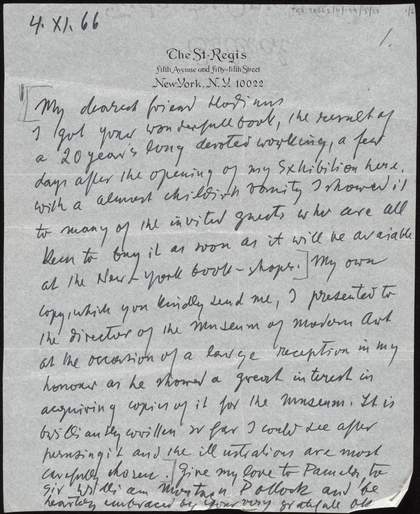 4. XI. 66
1.
The St. Regis
Fifth Avenue and fifty-fifth Street
New York, N.Y. 10022
[My dearest friend Hodin
I got your wonderfull book, the result of
a 20 year's long devoted working, a few
days after the opening of my Exhibition here.
With a almost childish vanity I showed it
to many of the invited guests who are all
keen to buy it as soon as it will be avaiable
at the New-York book-shops.] My own
copy, which you kindly send me, I presented to
the director of the Museum of Modern Art
at the occasion of a large reception in my
honour as he showed a great interest in
acquiring copies of it for the Museum. It is
brilliantly written so far I could see after
perusing it and the illustrations are most
carefully chosen. [Give my love to Pamela, to
Sir William Montagu Pollock and be
heartily embraced by your very gratefull old